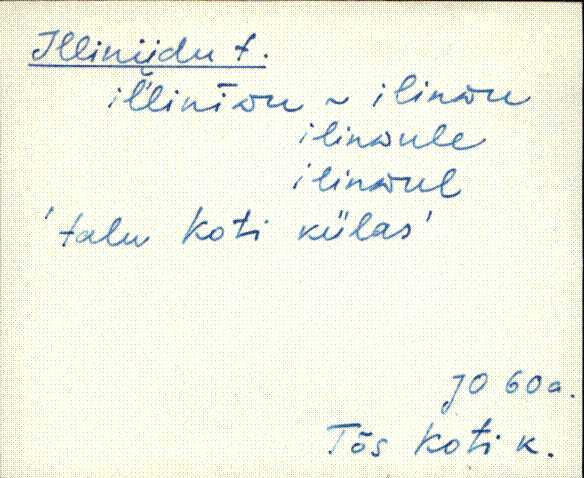 Illiniidu t.
il̆liniᴅu ~ ilinᴅu
ilinᴅule
ilinᴅul
'talu Koti külas'
JO 60a.
Tõs Koti k.